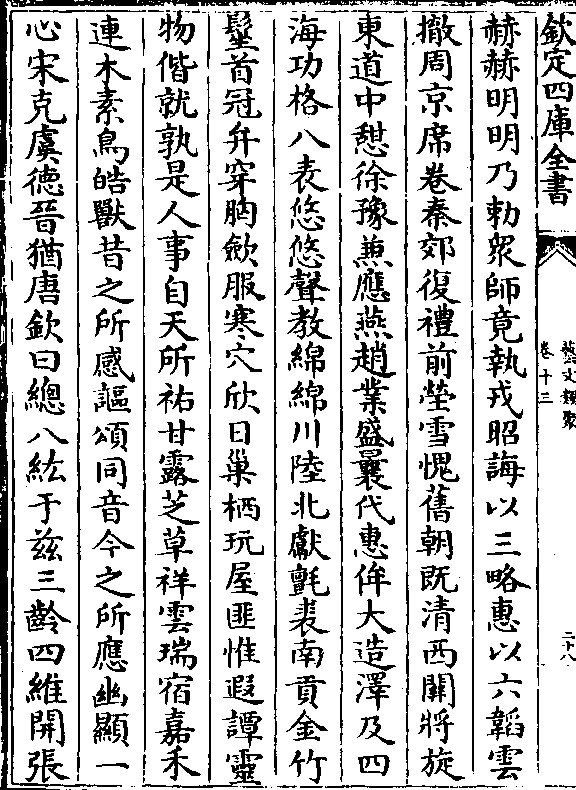 欽定四庫全書
藝文類聚
卷十三
二十八
赫赫明明乃勅衆師竟執戎昭誨以三略惠以六韜雲
撤周京席卷秦郊復禮前塋雪愧舊朝既清西關將旋
東道中憇徐豫兼應燕趙業盛曩代惠侔大造澤及四
海功格八表悠悠聲教綿綿川陸北獻氈裘南貢金竹
髽首冠弁穿胸斂服寒穴欣日巢栖玩屋匪惟遐譚靈
物偕就孰是人事自天所祐甘露芝草祥雲瑞宿嘉禾
連木素鳥皓獸昔之所感謳頌同音今之所應幽顯一
心宋克虞德晉猶唐欽曰總八紘于兹三齡四維開張